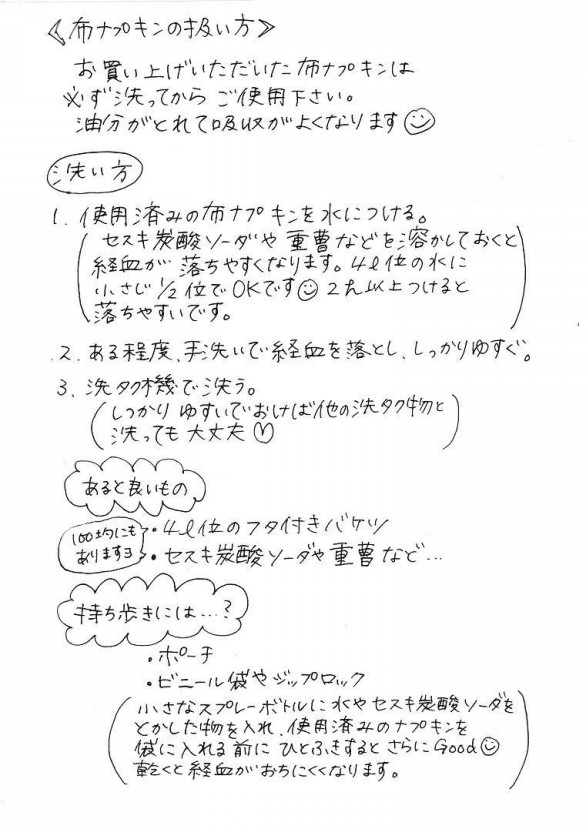 《布ナプキンの扱い方》
お買い上げいただいた布ナプキンは
必ず洗ってから ご使用下さい。
油分がとれて吸収がよくなります
洗い方
1. 使用済みの布ナプキンを水につける。
(セスキ炭酸ソーダや 重曹などを溶かしておくと
経血が 落ちやすくなります。4ℓ位の水に
小さじ 1/2 位でOKです 2h以上つけると
落ちやすいです。)
2. ある程度、手洗いで経血を落とし、しっかりゆすぐ。
3. 洗タク機で洗う。
(しっかり ゆすいでおけば他の洗タク物と
洗っても 大丈夫♡)
あると良いもの
100均にも
ありますヨ
・4ℓ位のフタ付きバケツ
・セスキ炭酸ソーダや重曹など…
持ち歩きには…?
・ポーチ
・ビニール袋やジップロック
(小さなスプレーボトルに水やセスキ炭酸ソーダを
とかした物を入れ、使用済みのナプキンを
袋に入れる前に ひとふきするとさらにGood
乾くと経血がおちにくくなります。)